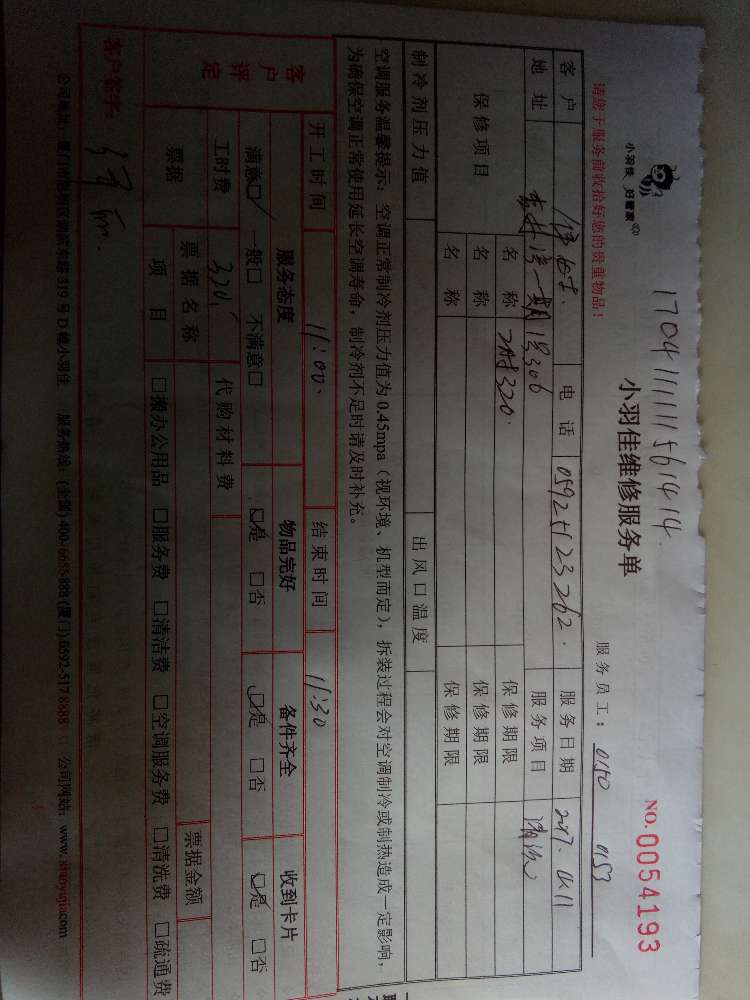 小羽佳 好管家
170411111561414
小羽佳维修服务单
NO.0054193
请您于服务前收拾好您的贵重物品!
服务员工: 0150 0153
客户 电话 服务日期 2017.04.11
地址 一期1号306 服务项目
保修项目 名称 保修期限
名称 保修期限
名称 保修期限
制冷剂压力值 出风口温度
空调服务温馨提示:空调正常制冷剂压力值为0.45mpa(视环境、机型而定),拆装过程会对空调制冷或制热造成一定影响,
为确保空调正常使用延长空调寿命,制冷剂不足时请及时补充。
开工时间 11:00 结束时间 11:30
客户评定 服务态度 物品完好 备件齐全 收到卡片
满意□ 一般□ 不满意□ □是 □否 □是 □否 □是 □否
工时费 320 代购材料费
票据 票据名称 票据金额
项目 □搬办公用品 □服务费 □清洁费 □空调服务费 □清洗费 □疏通费
客户签字:
公司地址:厦门市 319号D幢小羽佳 服务热线:(全国)400-6653-888 (厦门)0592-5178888 公司网站:www.xiaoyujia.com